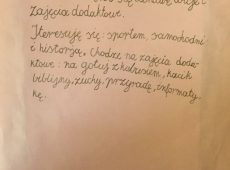 zajęcia dodatkowe.
Iteresuję się: sportem, samochodami
i historją. Chodzę na zajęcia doda-
tkowe: na gotuj z kubusiem, kącik
biblijny, zuchy, przyrodę, informaty-
kę.